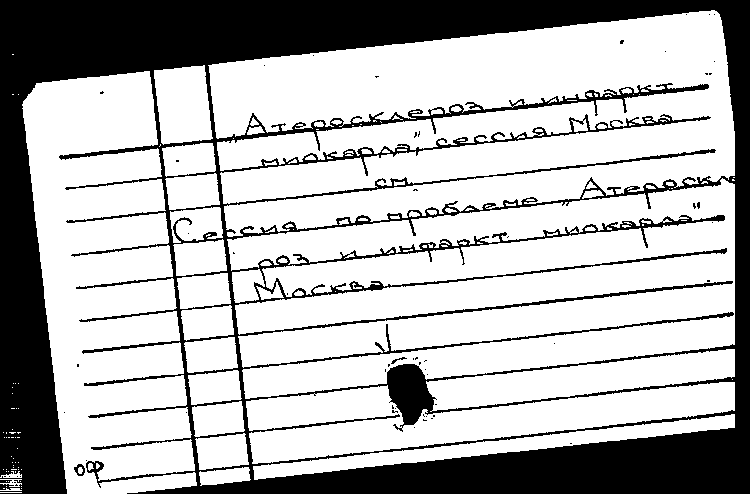 „Атеросклероз и инфаркт
миокарда", сессия. Москва
см.
Сессия по проблеме „Атероскле
роз и инфаркт миокарда"
Москва.
ОФ